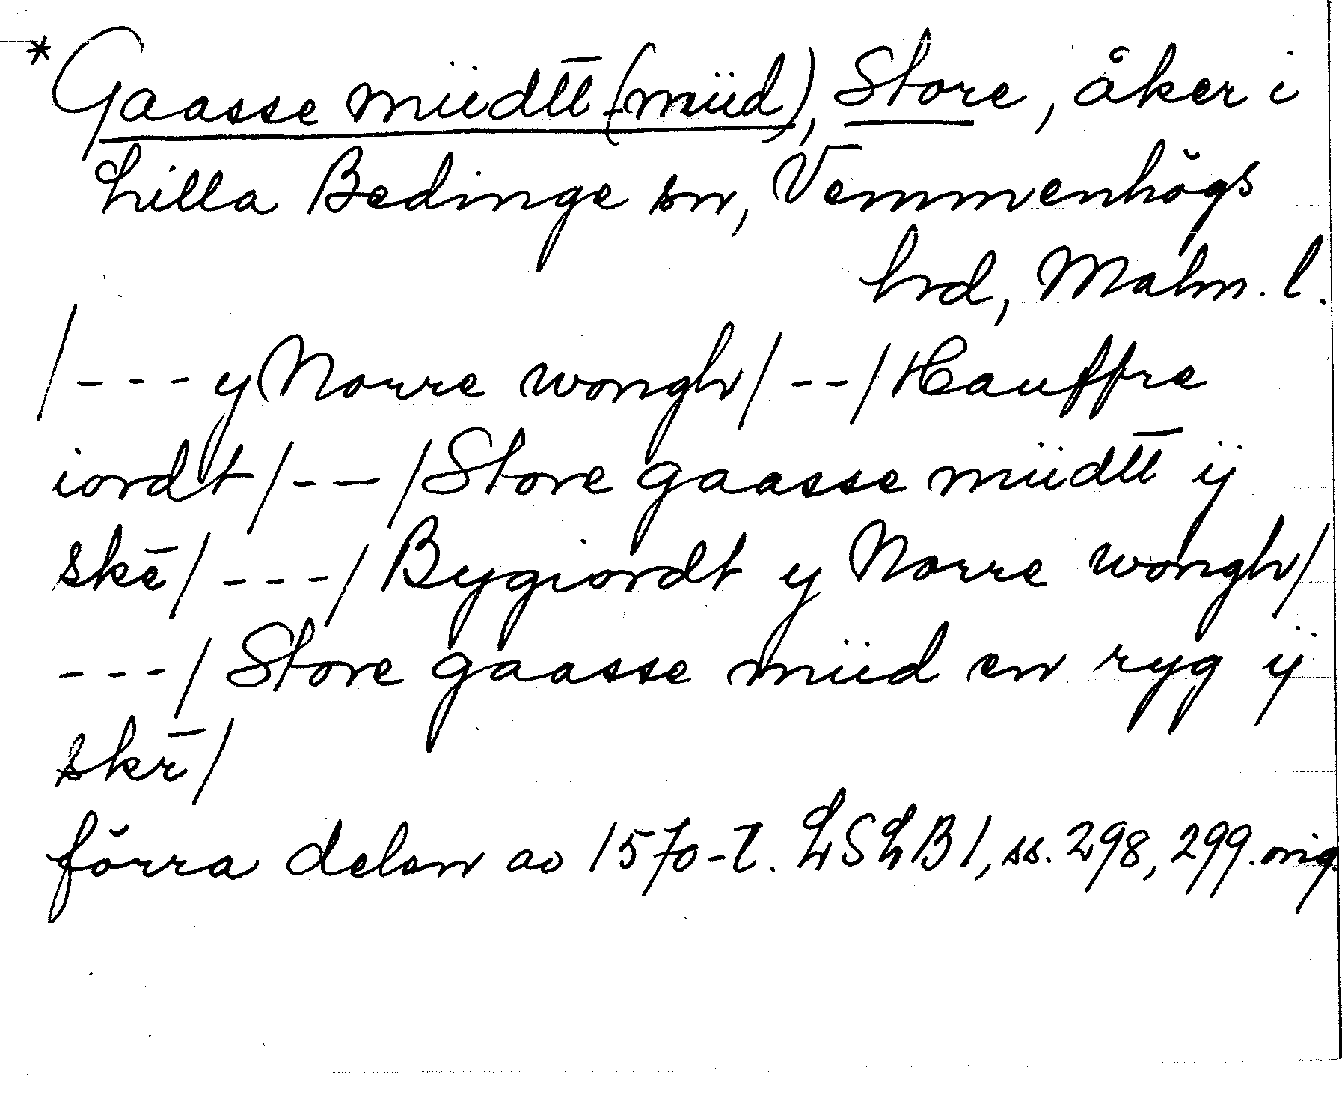 *Gaasse müdtt̄ (müd), Store, åker i
Lilla Bedinge sn, Vemmenhögs
hrd, Malm. l.
/--- y Norre wongh/--/Hauffre
iordt/--/Store gaasse müdtt̄ ÿ
skē/---/Bygiordt y Norre wongh/
---/Store gaasse müd en ryg ÿ
skr̄/
förra delen av 1570-t. LSLB1, ss. 298, 299. orig.